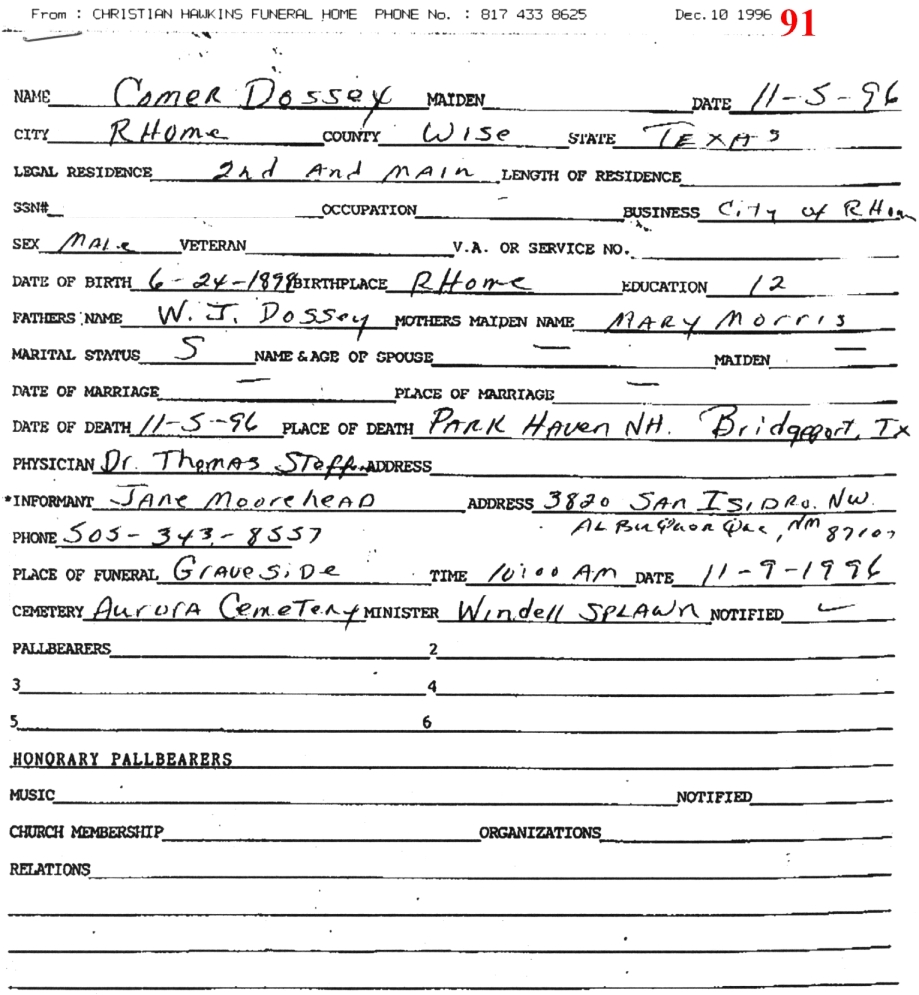 From : CHRISTIAN HAWKINS FUNERAL HOME PHONE No. : 817 433 8625 Dec. 10 1996 91
NAME Comer Dossey MAIDEN DATE 11-5-96
CITY RHome COUNTY Wise STATE TEXAS
LEGAL RESIDENCE 2nd And MAin LENGTH OF RESIDENCE
SSN# OCCUPATION BUSINESS City of RHom
SEX MALe VETERAN V.A. OR SERVICE NO.
DATE OF BIRTH 6-24-1898 BIRTHPLACE RHome EDUCATION 12
FATHERS NAME W. J. Dossey MOTHERS MAIDEN NAME MARY Morris
MARITAL STATUS S NAME & AGE OF SPOUSE — MAIDEN —
DATE OF MARRIAGE — PLACE OF MARRIAGE —
DATE OF DEATH 11-5-96 PLACE OF DEATH PARK HAven NH. Bridgeport, Tx
PHYSICIAN Dr. ThomAS ADDRESS
*INFORMANT JAne MooreheAD ADDRESS 3820 SAN ISIDRo. NW.
ALBuQuerQue, NM 87107
PHONE 505-343-8557
PLACE OF FUNERAL GraveSiDe TIME 10:00 AM DATE 11-9-1996
CEMETERY AurorA CemeTery MINISTER Windell SPLAWn NOTIFIED ✓
PALLBEARERS 2
3 4
5 6
HONORARY PALLBEARERS
MUSIC NOTIFIED
CHURCH MEMBERSHIP ORGANIZATIONS
RELATIONS